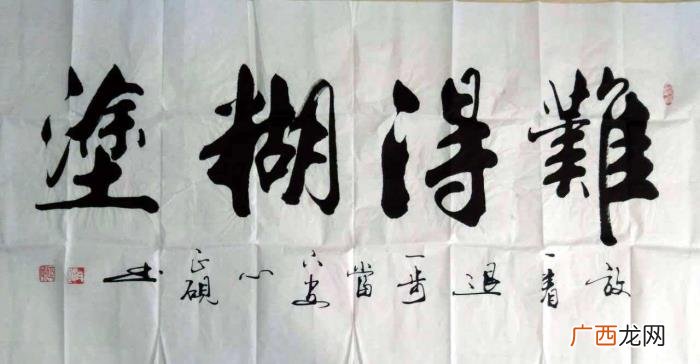 難得糊塗
放一着退一步當下安心正硯书
广西龙网